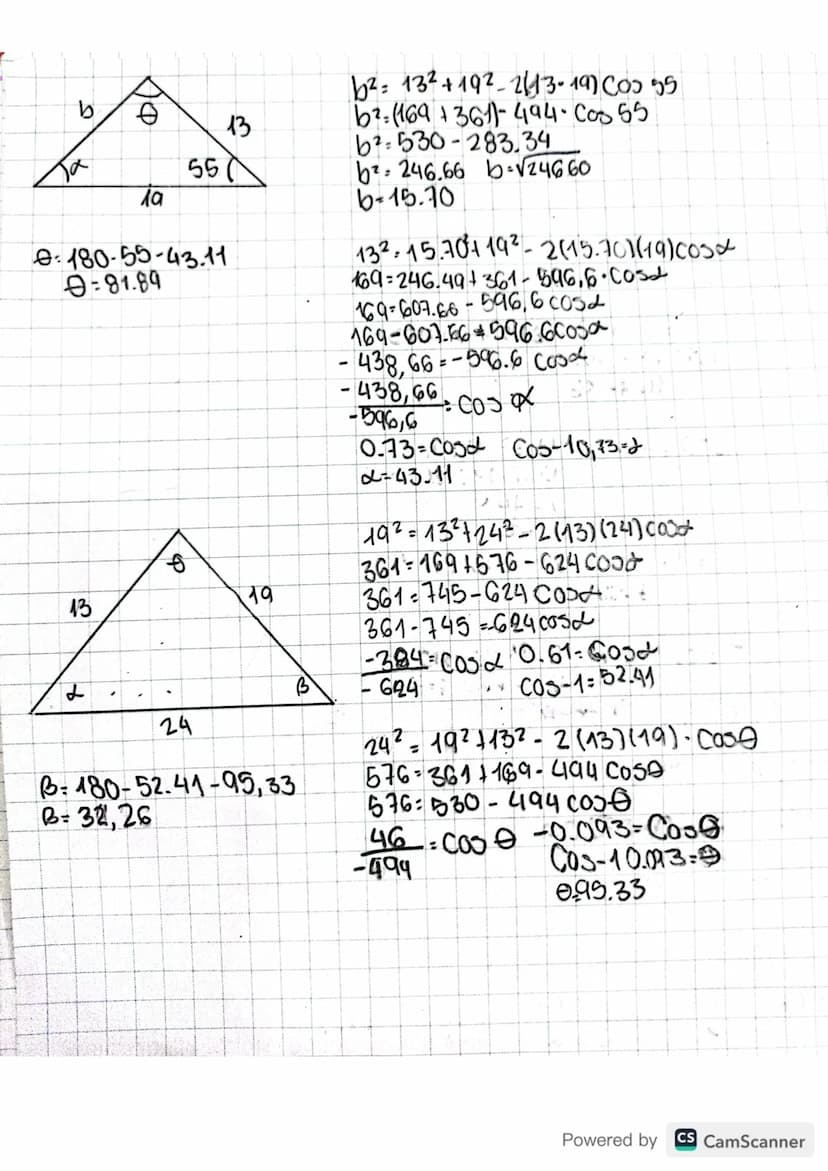 b
θ
13
α
55
19
b²= 13²+19²-2(13·19)Cos 55
b²=(169+361)-494·Cos 55
b²=530-283.34
b²=246.66 b=√24660
b=15.70
θ=180-55-43.11
θ=81.89
13²=15.70²+19²-2(15.70)(19)cosα
169=246.49+361-596,6·Cosα
169=607.66-596,6cosα
169-607.66=596.6Cosα
-438,66=-596.6 Cosα
-438,66
-596,6
=COS α
0.73=Cosα Cos-10,73=α
α=43.11
θ
13
19
α
β
24
19²=13²+24²-2(13)(24)cosα
361=169+576-624cosα
361=745-624Cosα
361-745=-624cosα
-384
-624
=Cosα 0.61=Cosα
Cos-1=52.41
β=180-52.41-95,33
β=32,26
24²=19²+13²-2(13)(19)·Cosθ
576=361+169-494Cosθ
576=530-494cosθ
46
-494
=Cosθ -0.093=Cosθ
Cos-10.093=θ
θ=95.33
Powered by CS CamScanner